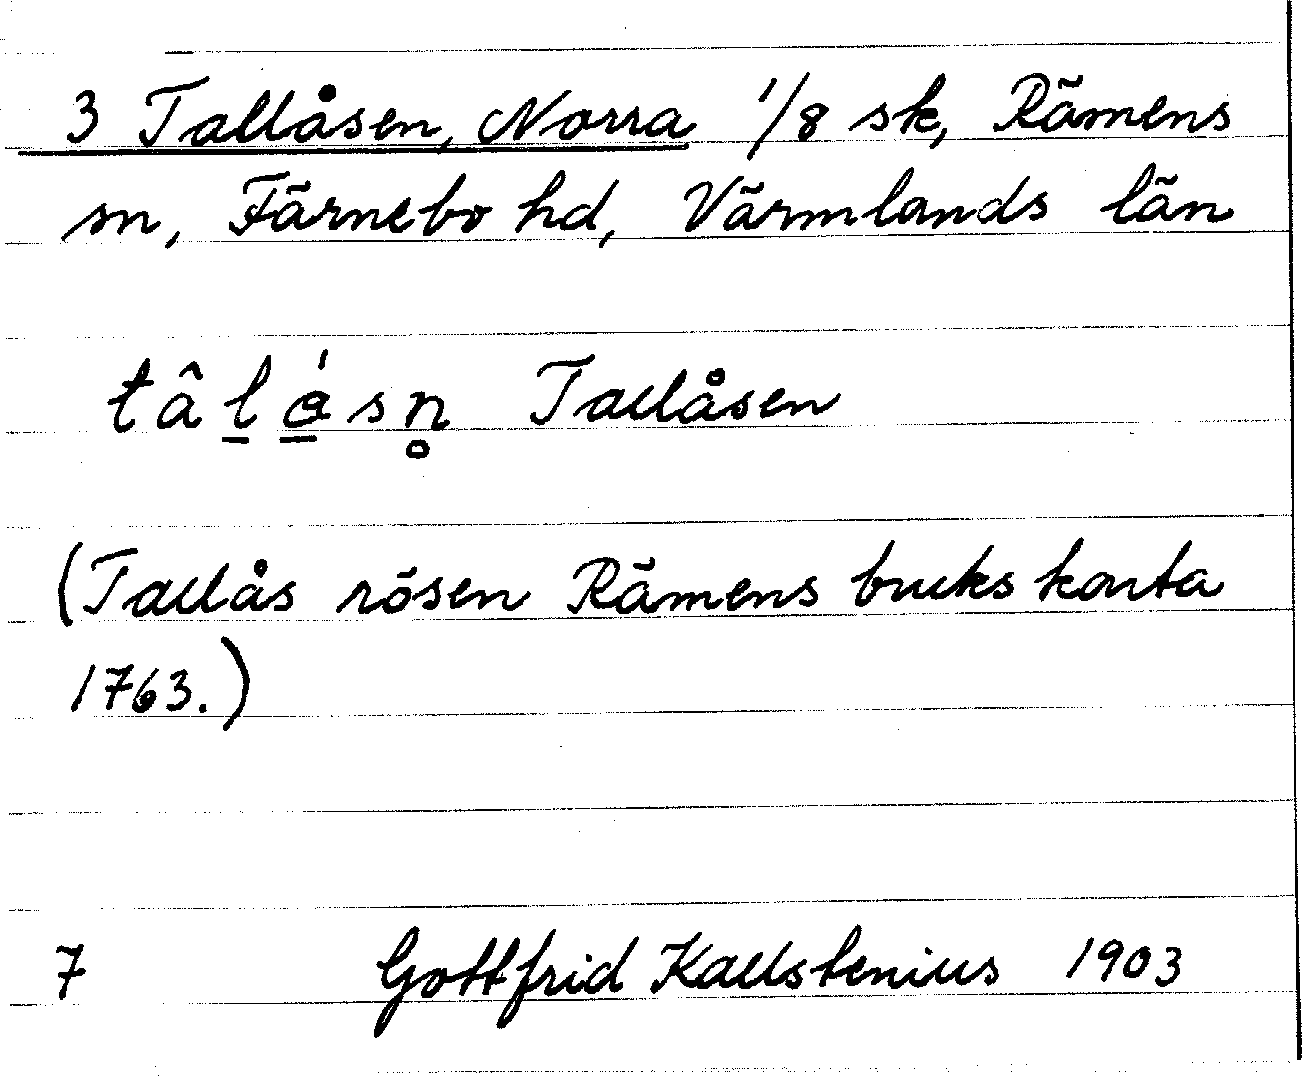 3 Tallåsen, Norra 1/8 sk, Rämens
sn, Färnebo hd, Värmlands län
tâl̠á̠sn̥ Tallåsen
(Tallås rösen Rämens bruks konta
1763.)
7 Gottfrid Kallstenius 1903